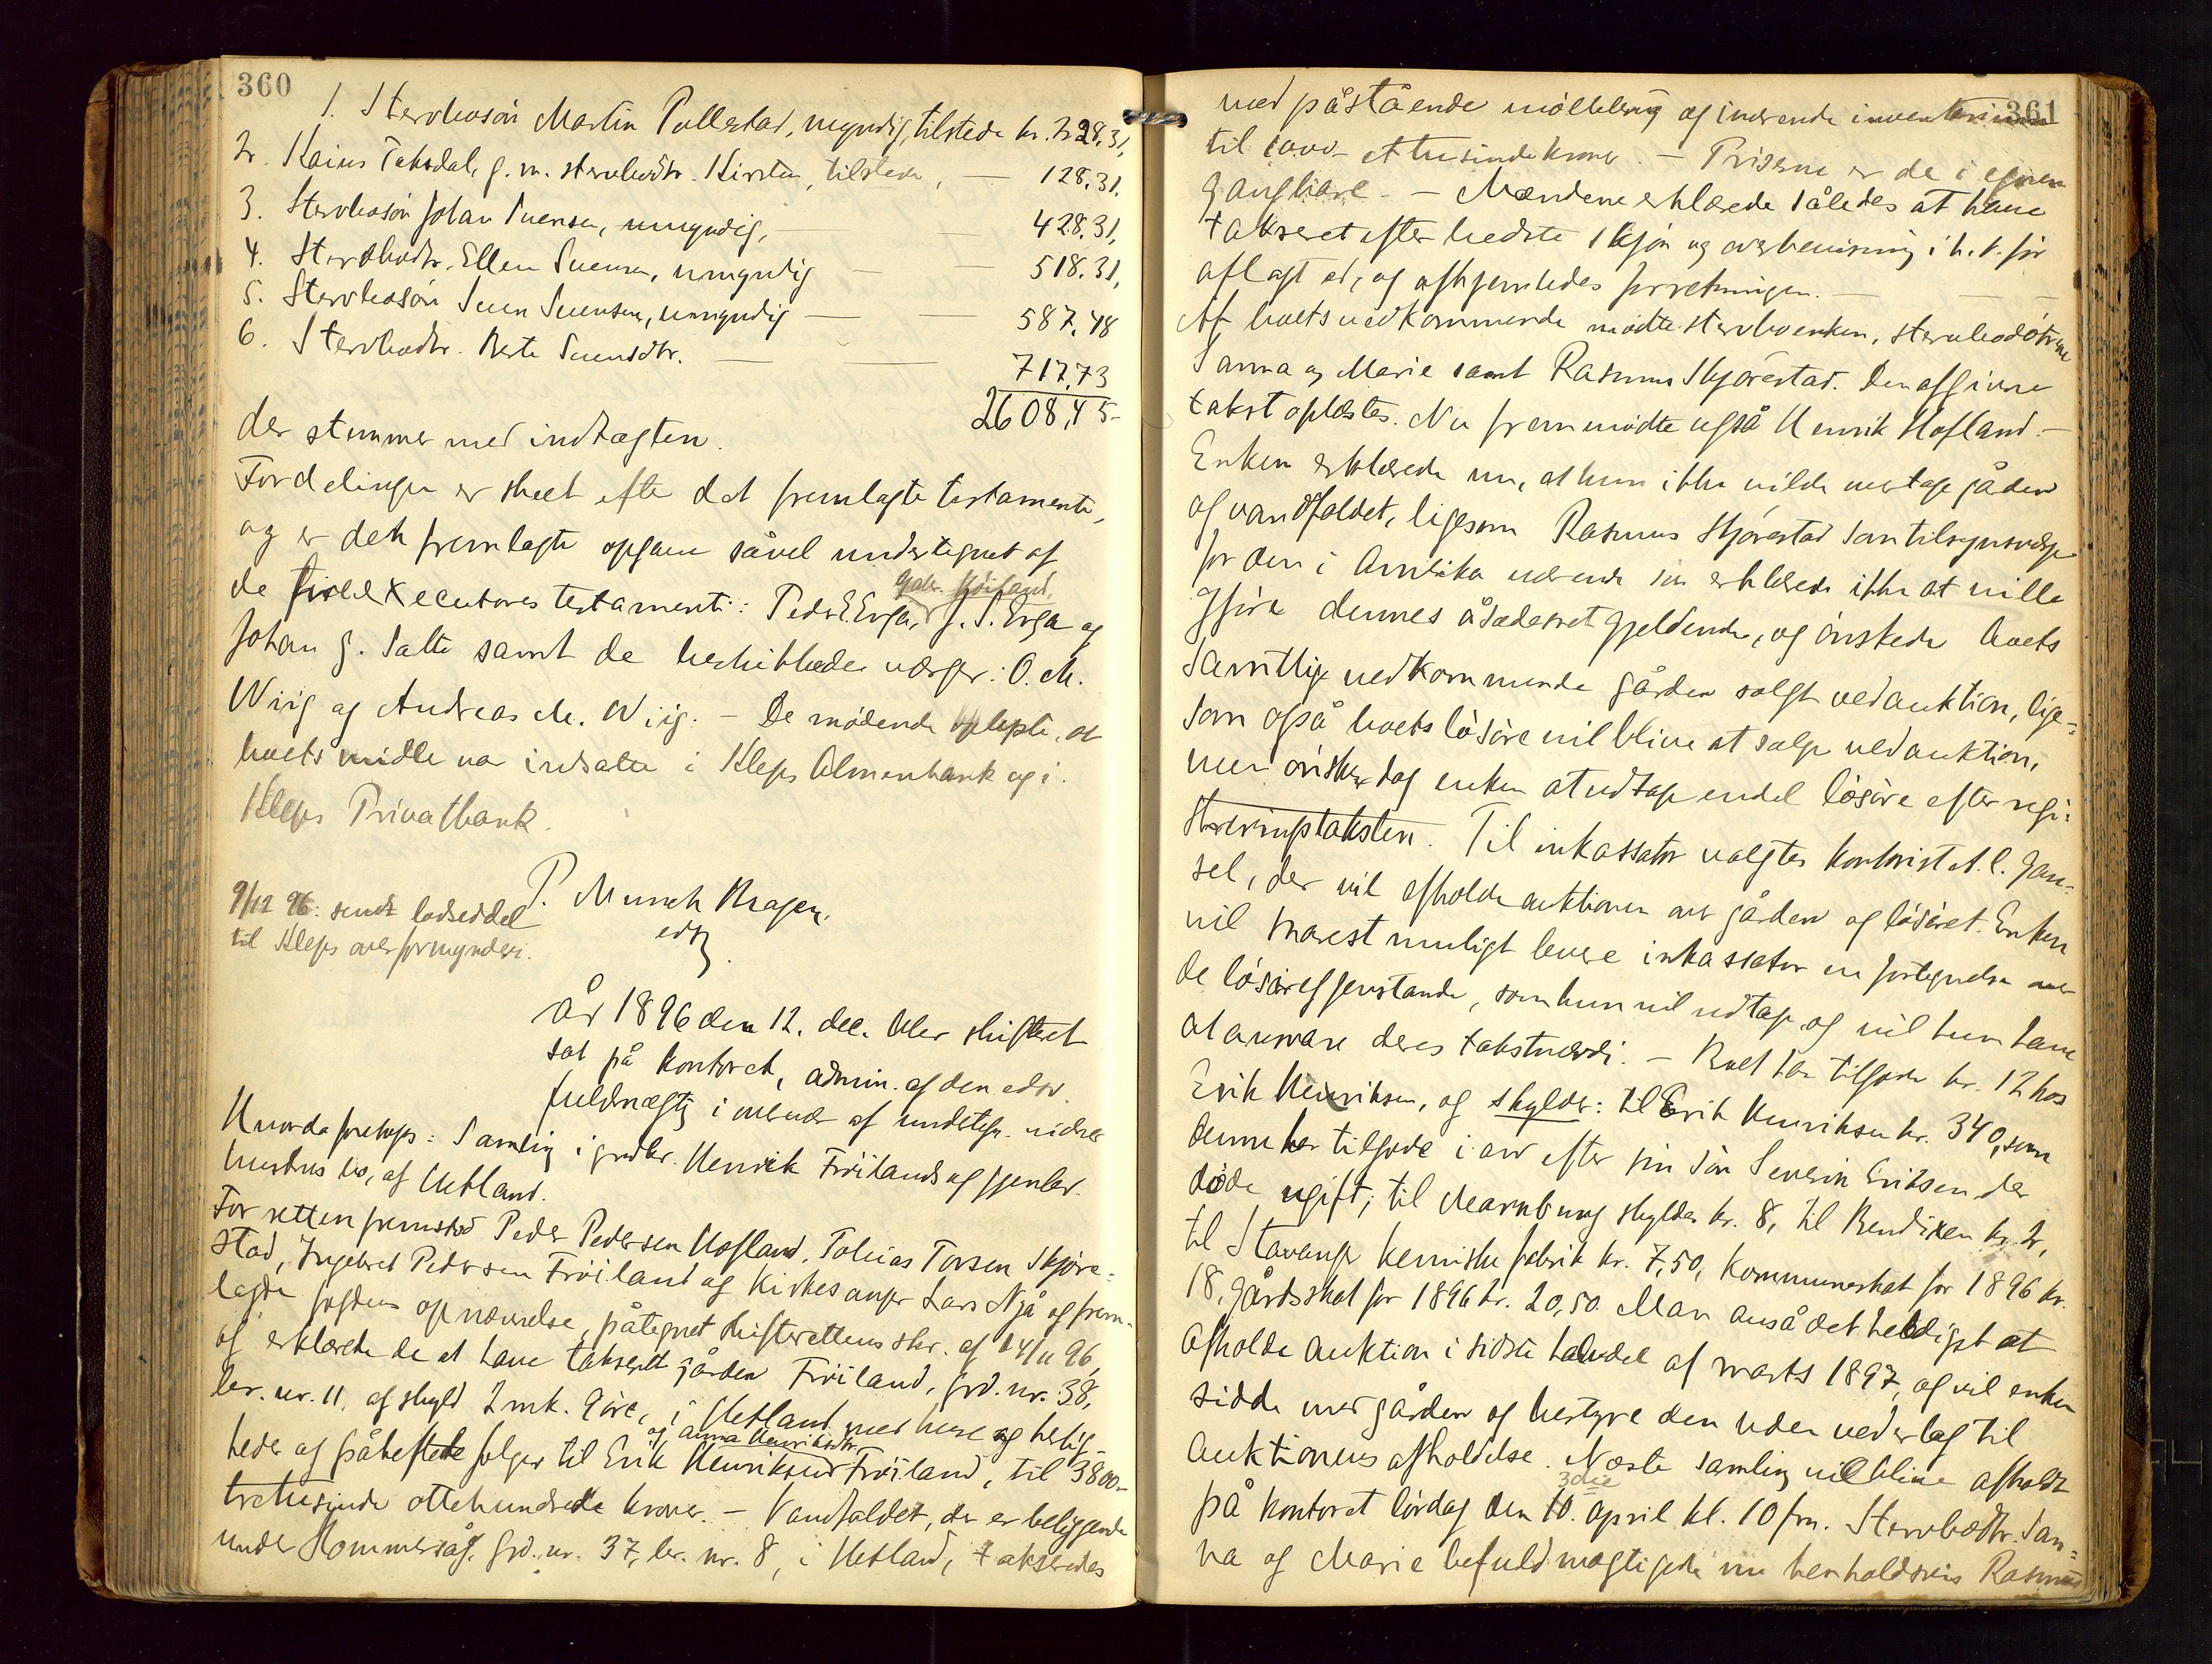 360
1. Stervbosön Martin Pollestad, myndig, tilstede kr. 228,31,
2. Kaius Taksdal, g. m. stervbodtr. Kirsten, tilstede, — 128,31,
3. Stervbosön Johan Svensen, umyndig, — — 428,31,
4. Stervbodtr. Ellen Svensen, umyndig — — 518,31,
5. Stervbosön Sven Svensen, umyndig — — 587,48
6. Stervbodtr. Berte Svensdtr. — — 717,73
2608,45-
der stemmer med indtægten.
Fordelingen er skeet efter det fremlagte testamente,
og er det fremlagte opgave såvel undertegnet af
de executores testamenti: Peder E. Erga, J. S. Erga og
Gabr. Höiland,
Johan G. Salte samt de beskikkede værger: O. M.
Wiig og Andreas M. Wiig. — De mödende oplyste, at
boets midle var indsatte i Kleps Almenbank og i
Kleps Privatbank.
P. Munch Kragen,
edsv
9/12 96: sendt lodseddel
til Kleps overformynderi.
År 1896 den 12. dec. blev skifteret
sat på kontoret, admin. af den edsv.
fuldmægtig i overvær af undertegn. vidner
Hvorda foretoges: Samling i grdbr. Henrik Fröilands og gjenlev.
hustrus bo, af Hetland.
For retten fremstod Peder Pedersen Hofland, Tobias Torsen Skjöre-
stad, Ingebret Pedersen Fröiland og kirkesanger Lars Njå og frem-
lagde fogdens opnævnelse, påtegnet skifterettens skr. af 24/11 96,
og erklærede de at have takseret gården Fröiland, grd. nr. 38,
br. nr. 11, af skyld 2 mk. 9 öre, i Hetland med huse og herlig-
og Anna Henriksdtr.
heder og påheftede følger til Erik Henriksens Fröiland, til 3800-
tretusinde ottehundrede kroner. — Vandfaldet, der er beliggende
under Hommersåg, grd. nr. 37, br. nr. 8, i Hetland, takseredes
361
med påstående möllebrug og inværende inventarium
til 1000- et tusinde kroner. — Priserne er de i egnen
gangbare. — Mændene erklærede således at have
takseret efter bedste skjön og overbevisning i h. t. för
aflagt ed, og afhjemledes forretningen. — — —
Af boets vedkommende mödte stervboenken, stervbodötrene
Sanna og Marie samt Rasmus Skjörestad. Den afgivne
takst oplæstes. Nu fremmödte også Henrik Hofland. —
Enken erklærede nu, at hun ikke vilde overtage gården
og vandfaldet, ligesom Rasmus Skjörestad som tilsynsværge
for den i Amerika værende sön erklærede ikke at ville
gjöre dennes åsædesret gjeldende, og önskede boets
samtlige vedkommende gården solgt ved auktion, lige-
som også boets lösöre vil blive at sælge ved auktion,
men önsker dog enken at udtage endel lösöre efter regi-
streringstaksten. Til inkassator valgtes kontorist A. C. Jan-
sel, der vil afholde auktionen over gården og lösöret. Enken
vil snarest muligt levere inkassator en fortegnelse over
de lösöregjenstande, som hun vil udtage, og vil hun have
at ansvare deres takstværdi. — Boet har tilgode kr. 12 hos
Erik Henriksen, og skylder: til Erik Henriksen kr. 340, som
denne har tilgode i arv efter sin sön Severin Eriksen, der
döde ugift; til Marnburg skyldes kr. 8, til Bendixen kr. 2,
til Stavanger kemiske fabrik kr. 7,50, kommuneskat for 1896 kr.
18, gårdsskat for 1896 kr. 20,50. Man anså det heldigst at
afholde auktion i sidste halvdel af marts 1897, og vil enken
sidde med gården og bestyre den uden vederlag til
auktionens afholdelse. Næste samling vil blive afholdt
3die
på kontoret lördag den 10. april kl. 10 fm. Stervbodtr. San-
na og Marie befuldmægtigede nu henholdsvis Rasmus